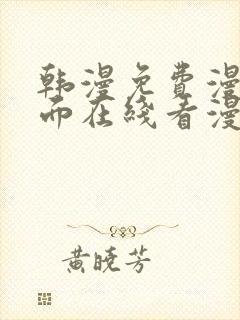 韩漫免费漫
而在线看漫
黄晓芳